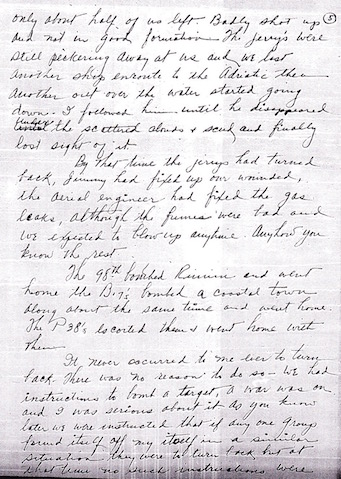 5
only about half of us left. Badly shot up
and not in good formation. The jerry's were
still pickering away at us and we lost
another ship enroute to the Adriatic then
another out over the water started going
down. I followed him until he disappeared
under the scattered clouds & scud and finally
lost sight of it
By that time the jerrys had turned
back, Jimmy had fixed up our wounded,
the aerial engineer had fixed the gas
leaks, although the fumes were bad and
we expected to blow up anytime. Anyhow you
know the rest.
The 98th bombed Rimini and went
home the B-17s bombed a coastal town
along about the same time and went home.
The P38's escorted them & went home with
them.
It never occurred to me ever to turn
back. There was no reason to do so - We had
instructions to bomb a target, a war was on
and I was serious about it as you know
later we were instructed that if any one group
found itself off by itself in a similar
situation they were to turn back but at
that time no such instructions were